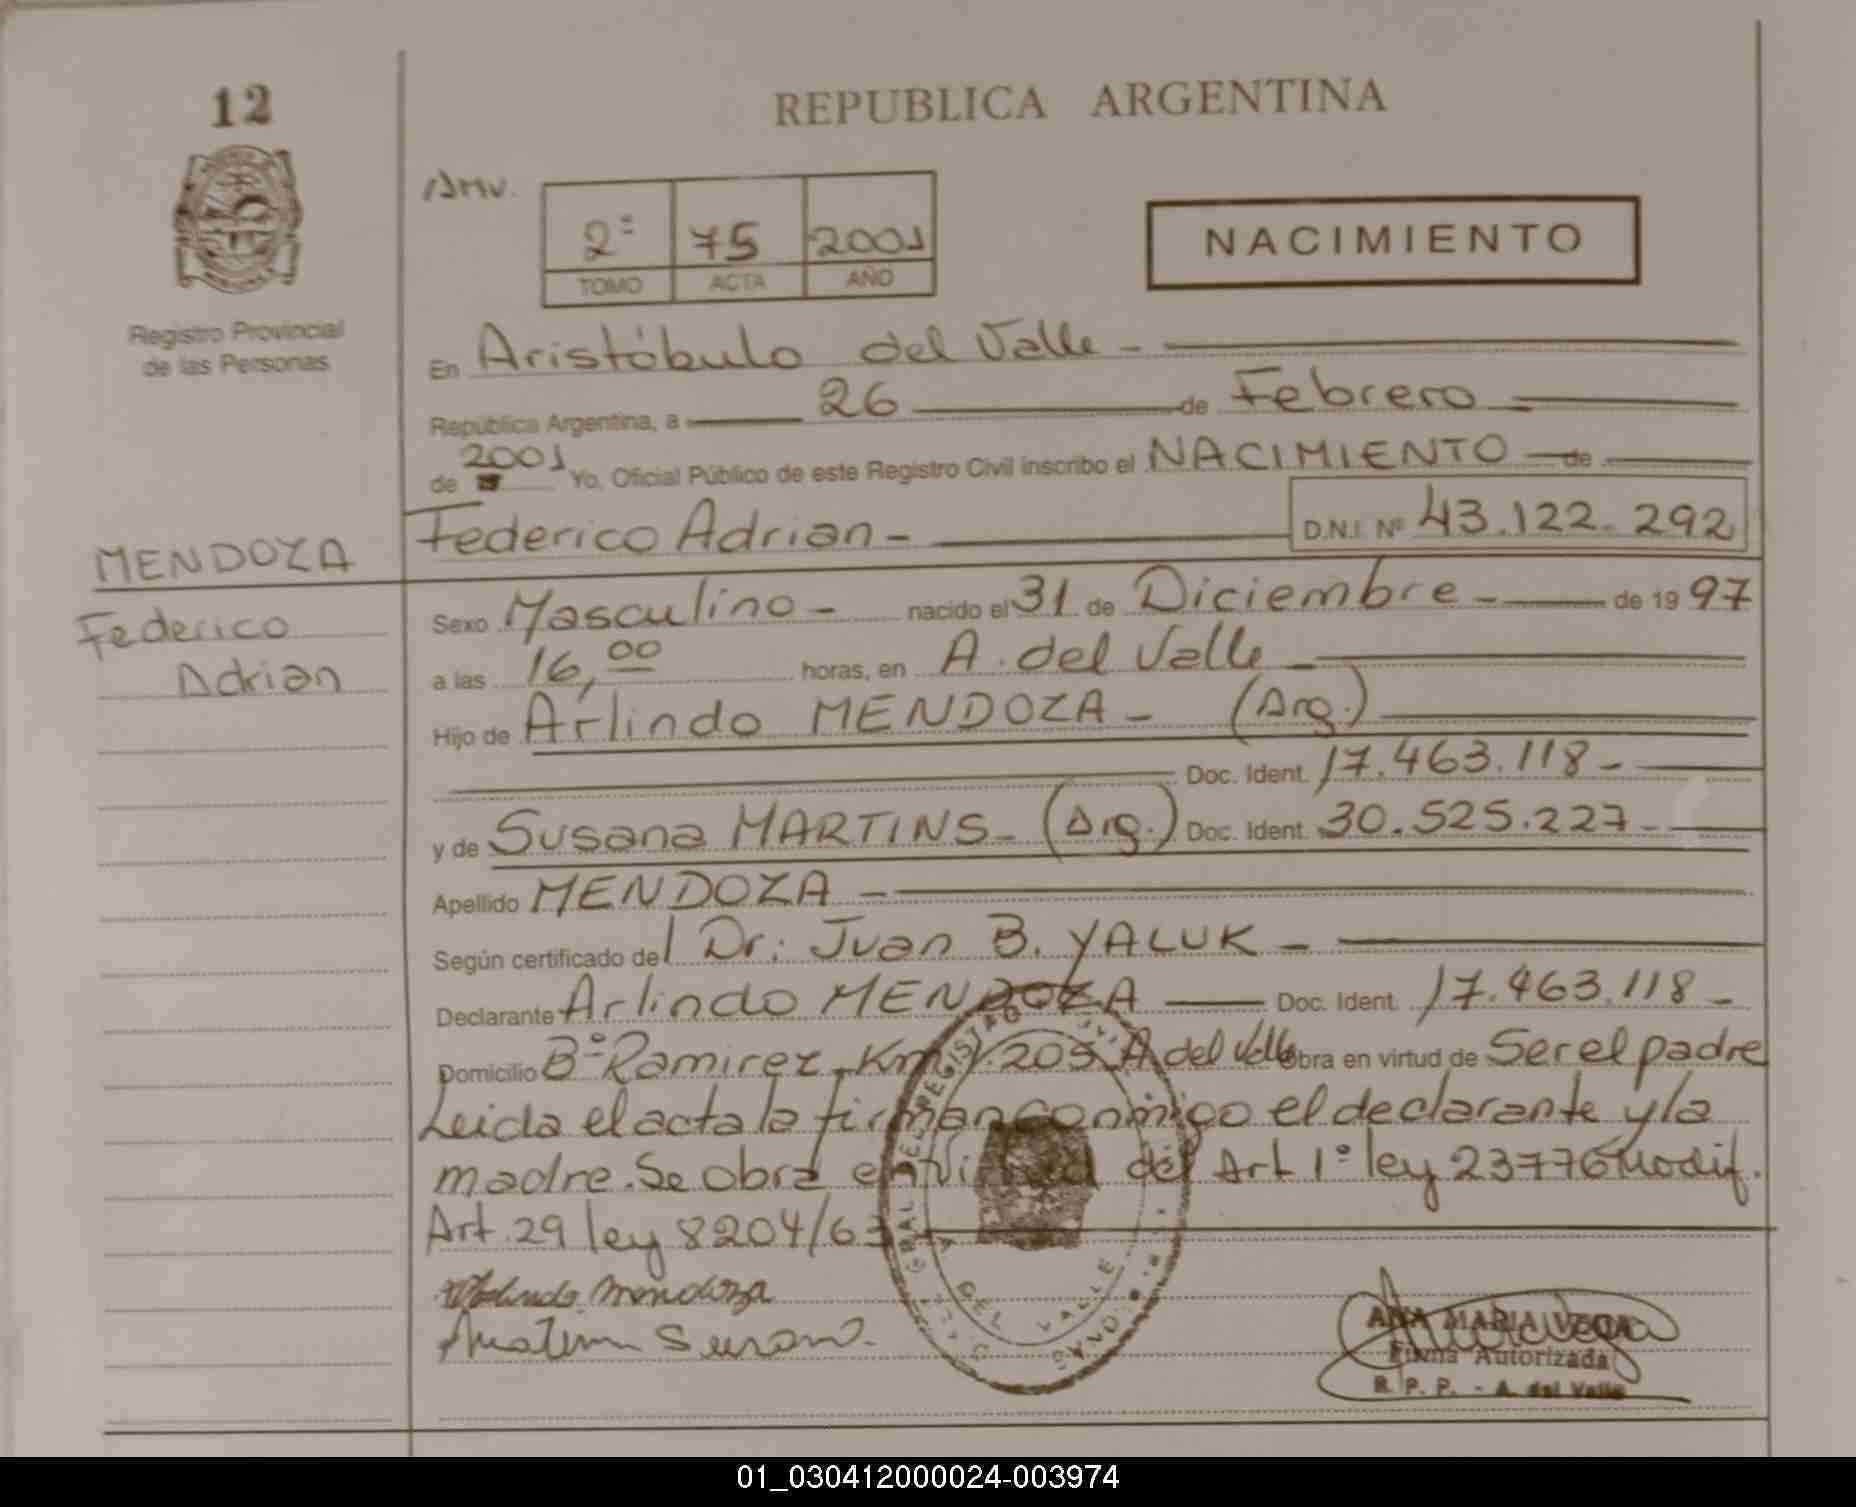 12
Registro Provincial
de las Personas
MENDOZA
Federico
Adrian
REPUBLICA ARGENTINA
Amv.
2º 75 2001
TOMO ACTA AÑO
NACIMIENTO
En Aristóbulo del Valle -
República Argentina, a 26 de Febrero
de 2001 Yo, Oficial Público de este Registro Civil inscribo el NACIMIENTO de
Federico Adrian - D.N.I. Nº 43.122.292
Sexo Masculino - nacido el 31 de Diciembre - de 1997
a las 16,00 horas, en A. del Valle -
Hijo de Arlindo MENDOZA - (Arg.)
Doc. Ident. 17.463.118 -
y de Susana MARTINS - (Arg.) Doc. Ident. 30.525.227 -
Apellido MENDOZA -
Según certificado del Dr. Juan B. YALUK -
Declarante Arlindo MENDOZA Doc. Ident. 17.463.118 -
Domicilio Bº Ramirez - Km. 1.205 A del Valle Obra en virtud de Ser el padre
Leida el acta la firman conmigo el declarante y la
madre. Se obra en virtud del Art 1º ley 23776 Modif.
Art. 29 ley 8204/63 -
Arlindo Mendoza
ANA MARIA VEGA
Firma Autorizada
R. P. P. - A. del Valle
DEL VALLE
01_030412000024-003974